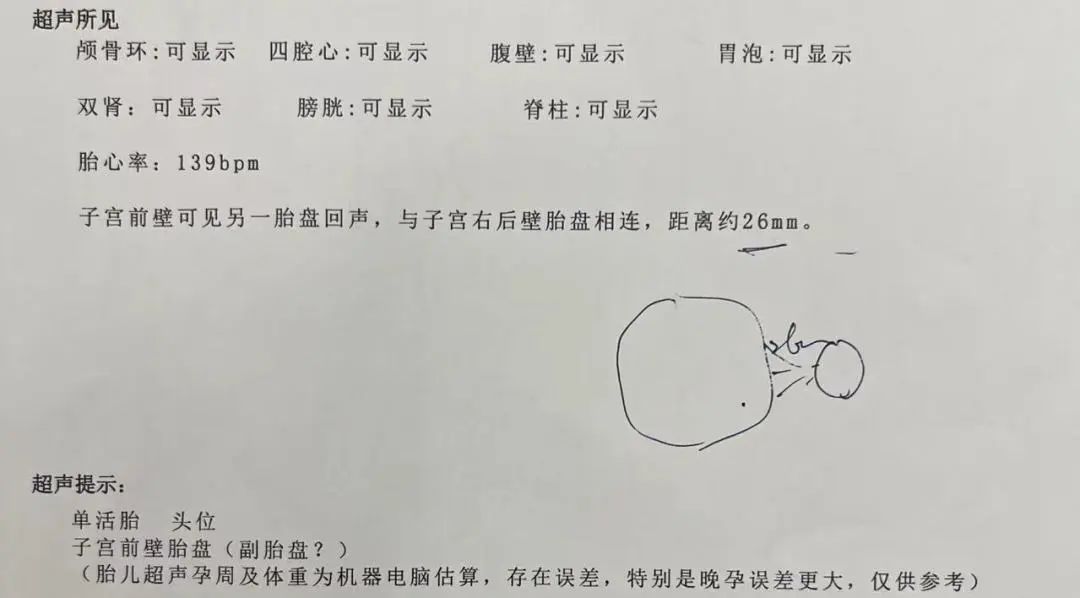 超声所见
颅骨环:可显示 四腔心:可显示 腹壁:可显示 胃泡:可显示
双肾：可显示 膀胱:可显示 脊柱:可显示
胎心率：139bpm
子宫前壁可见另一胎盘回声，与子宫右后壁胎盘相连，距离约26mm。
超声提示：
单活胎 头位
子宫前壁胎盘（副胎盘？）
（胎儿超声孕周及体重为机器电脑估算，存在误差，特别是晚孕误差更大，仅供参考）